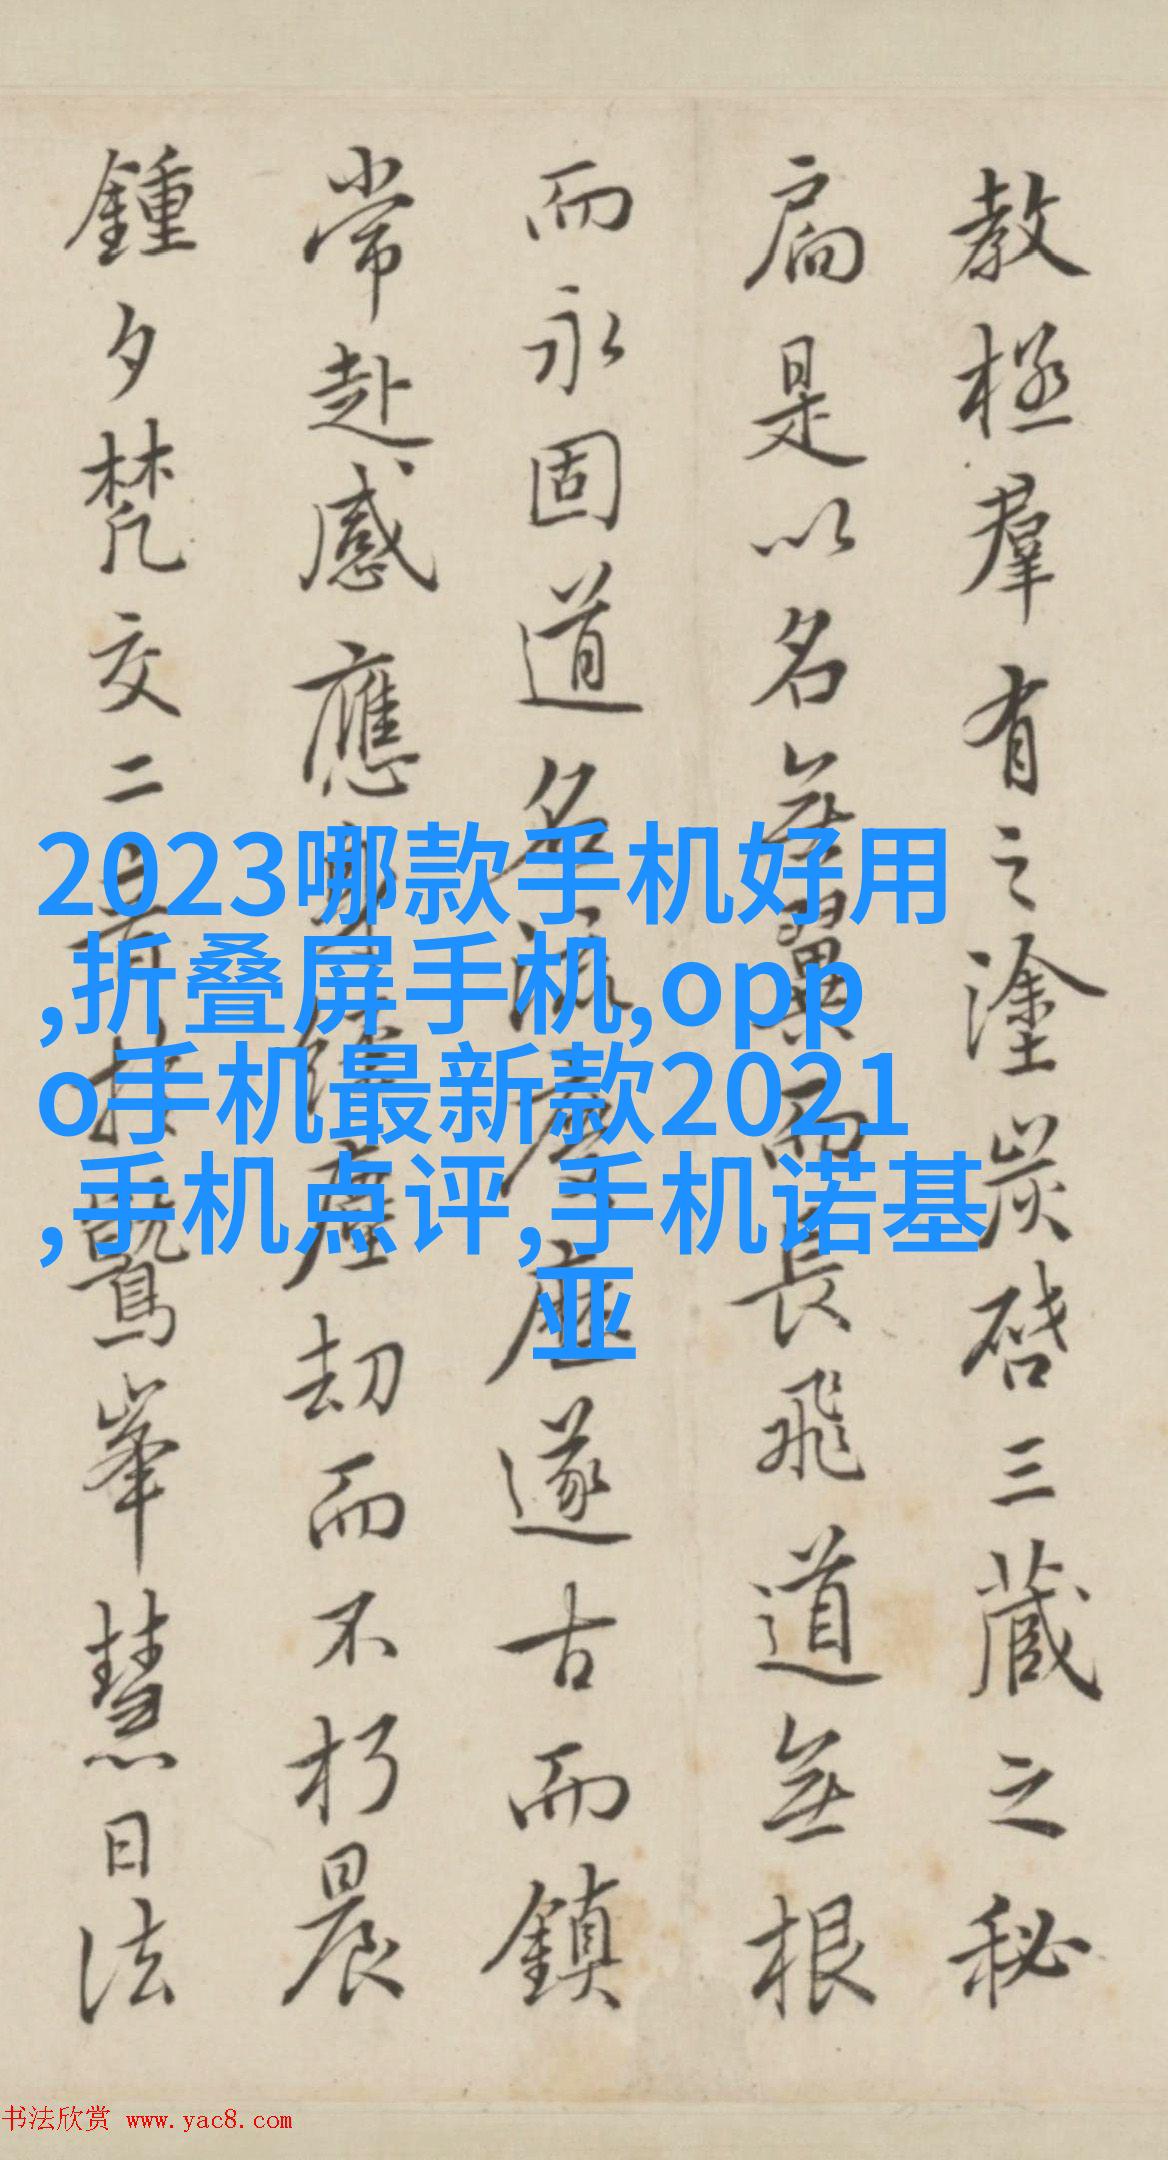 教極羣有之塗炭啓三藏之秘
扃是以名無翼而長飛道無根
而永固道名流慶歷遂古而鎮
常赴感應身經塵劫而不朽晨
鍾夕梵交二音於鷲峯慧日法
2023哪款手机好用
,折叠屏手机,opp
o手机最新款2021
,手机点评,手机诺基
亚
书法欣赏 www.yac8.com